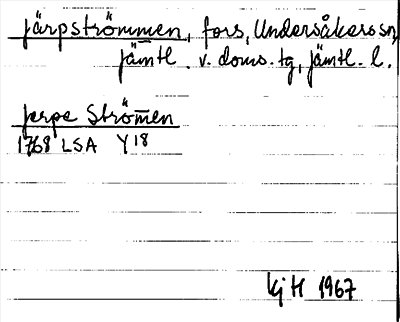 järpströmmen, fors, Undersåkers sn,
jämtl. v. doms. tg, jämtl. l.
jerpe Strömen
1768 LSA Y18
kj H 1967